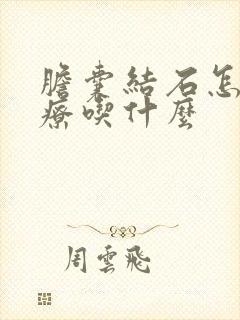 膽囊結石怎
療喫什麼
周雲飛